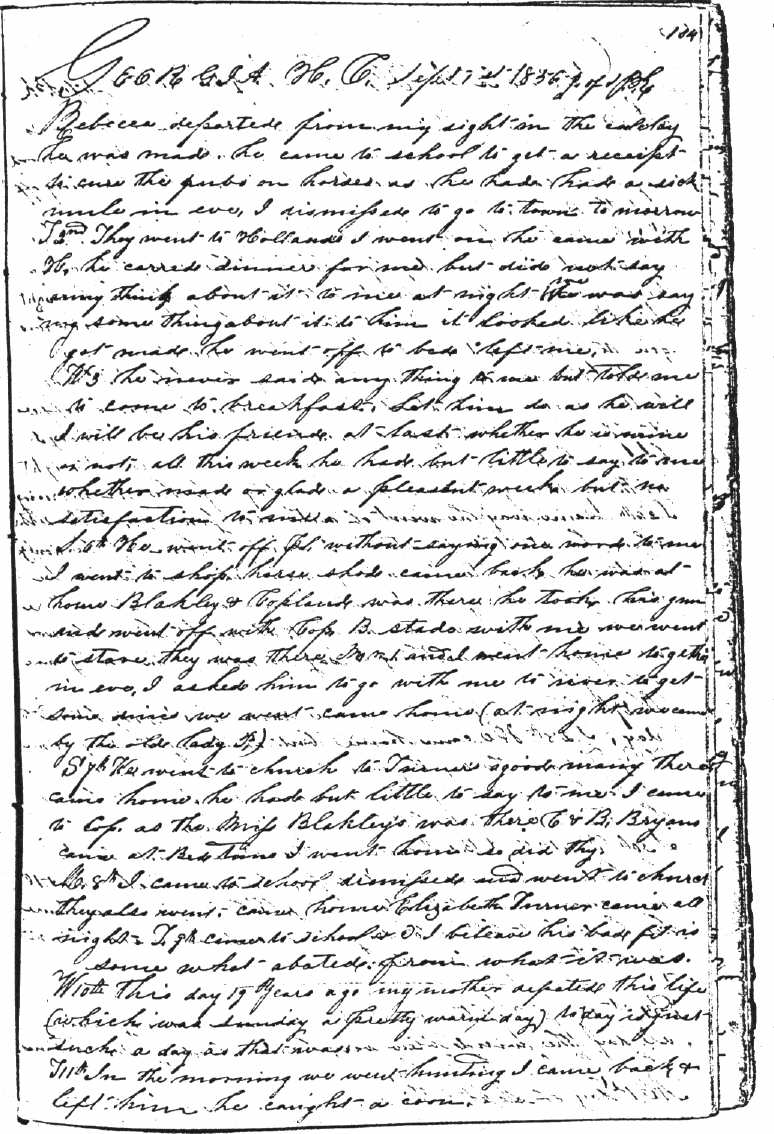 134
GEORGIA H. C. Sept 1st 1856
Rebecca departed from my sight in the
he was made. he came to school to get a receipt
to cure the pubs on horses as he hade had a sick
mule in eve, I dismissede to go to town to morrow
T 2nd They went to Hollands I went on he came with
H, he carrede dinner for me but dide not say
anny thing about it to me at night Hee was say
ing some thing about it to him it looked like he
got made he went off to bede left me,
W 3 he never saide any thing to me but tolde me
to come to breakfast. Let him do as he will
I will be his friende at last whether he is mine
or not, all this week he hade but little to say to me
whether made or glade a pleasent week but no
satisfaction to me
S. 6th He went off without saying one worde to me
I went to shop. horse shode came back he was at
home Blakley & Coplande was there he took his gun
and went off with Cop. B. stade with me we went
to store they was there and I went home togethe
in eve, I asked him to go with me to river to get
some we went came home (at night we came
by the olde lady P.)
S 7th He went to church to Turner agoode many there
came home. he hade but little to say to me. I came
to Cop. as the Miss Blakleys was there C & B. Bryans
came at Bed Time I went home so did thy.
M. 8th I came to school dismissede and went to church
they also went. came home Elizabeth Turner came all
night T 9th came to school & I beleave his bade fit is
some what abatede from what it was.
W 10th This day 19 years ago my mother depatede this life
(which was Sunday a pretty warm day) to day is just
such a day as that was
T 11th In the morning we went hunting I came back &
left him he caught a coon.